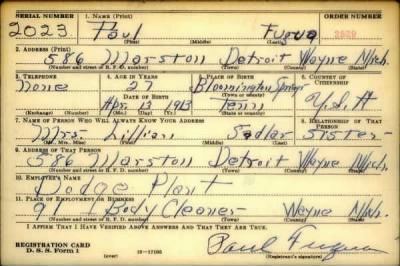 SERIAL NUMBER 1. NAME (Print) ORDER NUMBER
2023 Paul Fuqua
(First) (Middle) (Last)
2. ADDRESS (Print)
586 Marston Detroit Wayne Mich.
(Number and street or R. F. D. number) (Town) (County) (State)
3. TELEPHONE 4. AGE IN YEARS 5. PLACE OF BIRTH 6. COUNTRY OF CITIZENSHIP
None 27 Bloomington Springs
DATE OF BIRTH (Town or county)
Apr. 13 1913 Tenn U.S.A
(Exchange) (Number) (Mo.) (Day) (Yr.) (State or country)
7. NAME OF PERSON WHO WILL ALWAYS KNOW YOUR ADDRESS 8. RELATIONSHIP OF THAT PERSON
Mrs. Lillian Sadler Sister
(Mr., Mrs., Miss) (First) (Middle) (Last)
9. ADDRESS OF THAT PERSON
586 Marston Detroit Wayne Mich.
(Number and street or R. F. D. number) (Town) (County) (State)
10. EMPLOYER'S NAME
Dodge Plant
11. PLACE OF EMPLOYMENT OR BUSINESS
Body Cleaner Wayne Mich.
(Number and street or R. F. D. number) (Town) (County) (State)
I AFFIRM THAT I HAVE VERIFIED ABOVE ANSWERS AND THAT THEY ARE TRUE.
REGISTRATION CARD
D. S. S. Form 1 (over) Paul Fuqua
(Registrant's signature)